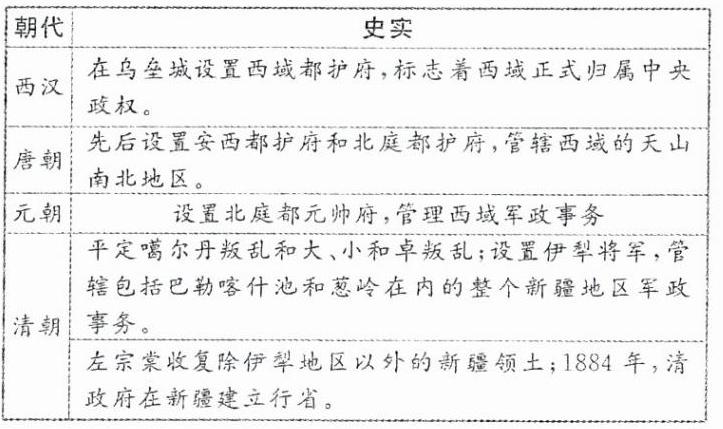 朝代 史实
西汉 在乌垒城设置西域都护府,标志着西域正式归属中央
政权。
唐朝 先后设置安西都护府和北庭都护府,管辖西域的天山
南北地区。
元朝 设置北庭都元帅府,管理西域军政事务
清朝 平定噶尔丹叛乱和大、小和卓叛乱;设置伊犁将军,管
辖包括巴勒喀什池和葱岭在内的整个新疆地区军政
事务。
左宗棠收复除伊犁地区以外的新疆领土;1884 年,清
政府在新疆建立行省。